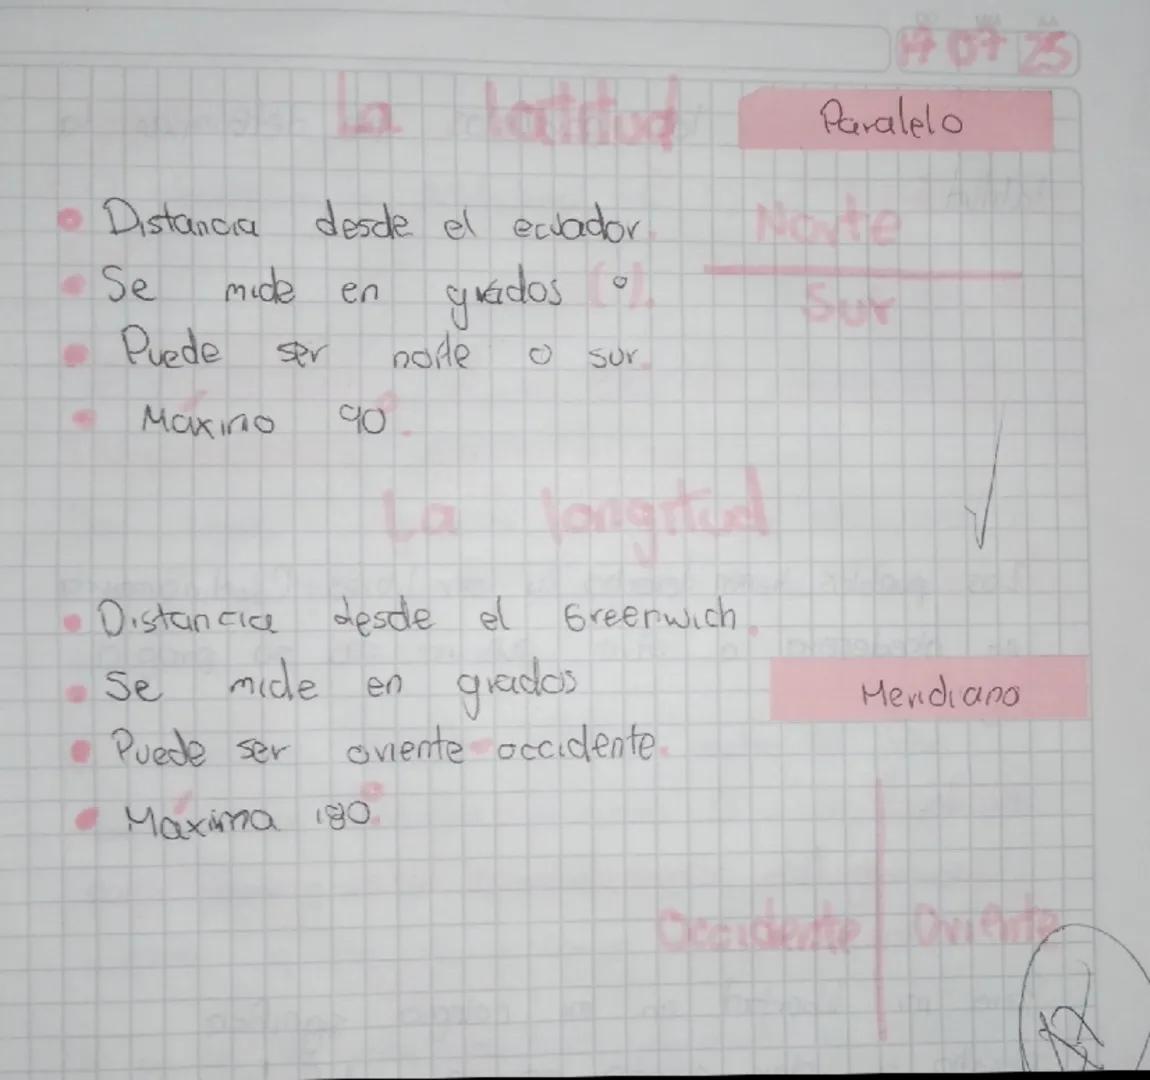 17 07 25
La latitud
Paralelo
• Distancia desde el ecuador.
Norte
• Se mide en grados (°).
Sur
• Puede ser norte o sur.
• Máximo 90°.
La longitud
• Distancia desde el Greenwich.
• Se mide en grados
Meridiano
• Puede ser oriente-occidente.
• Máxima 180°.
Occidente Oriente